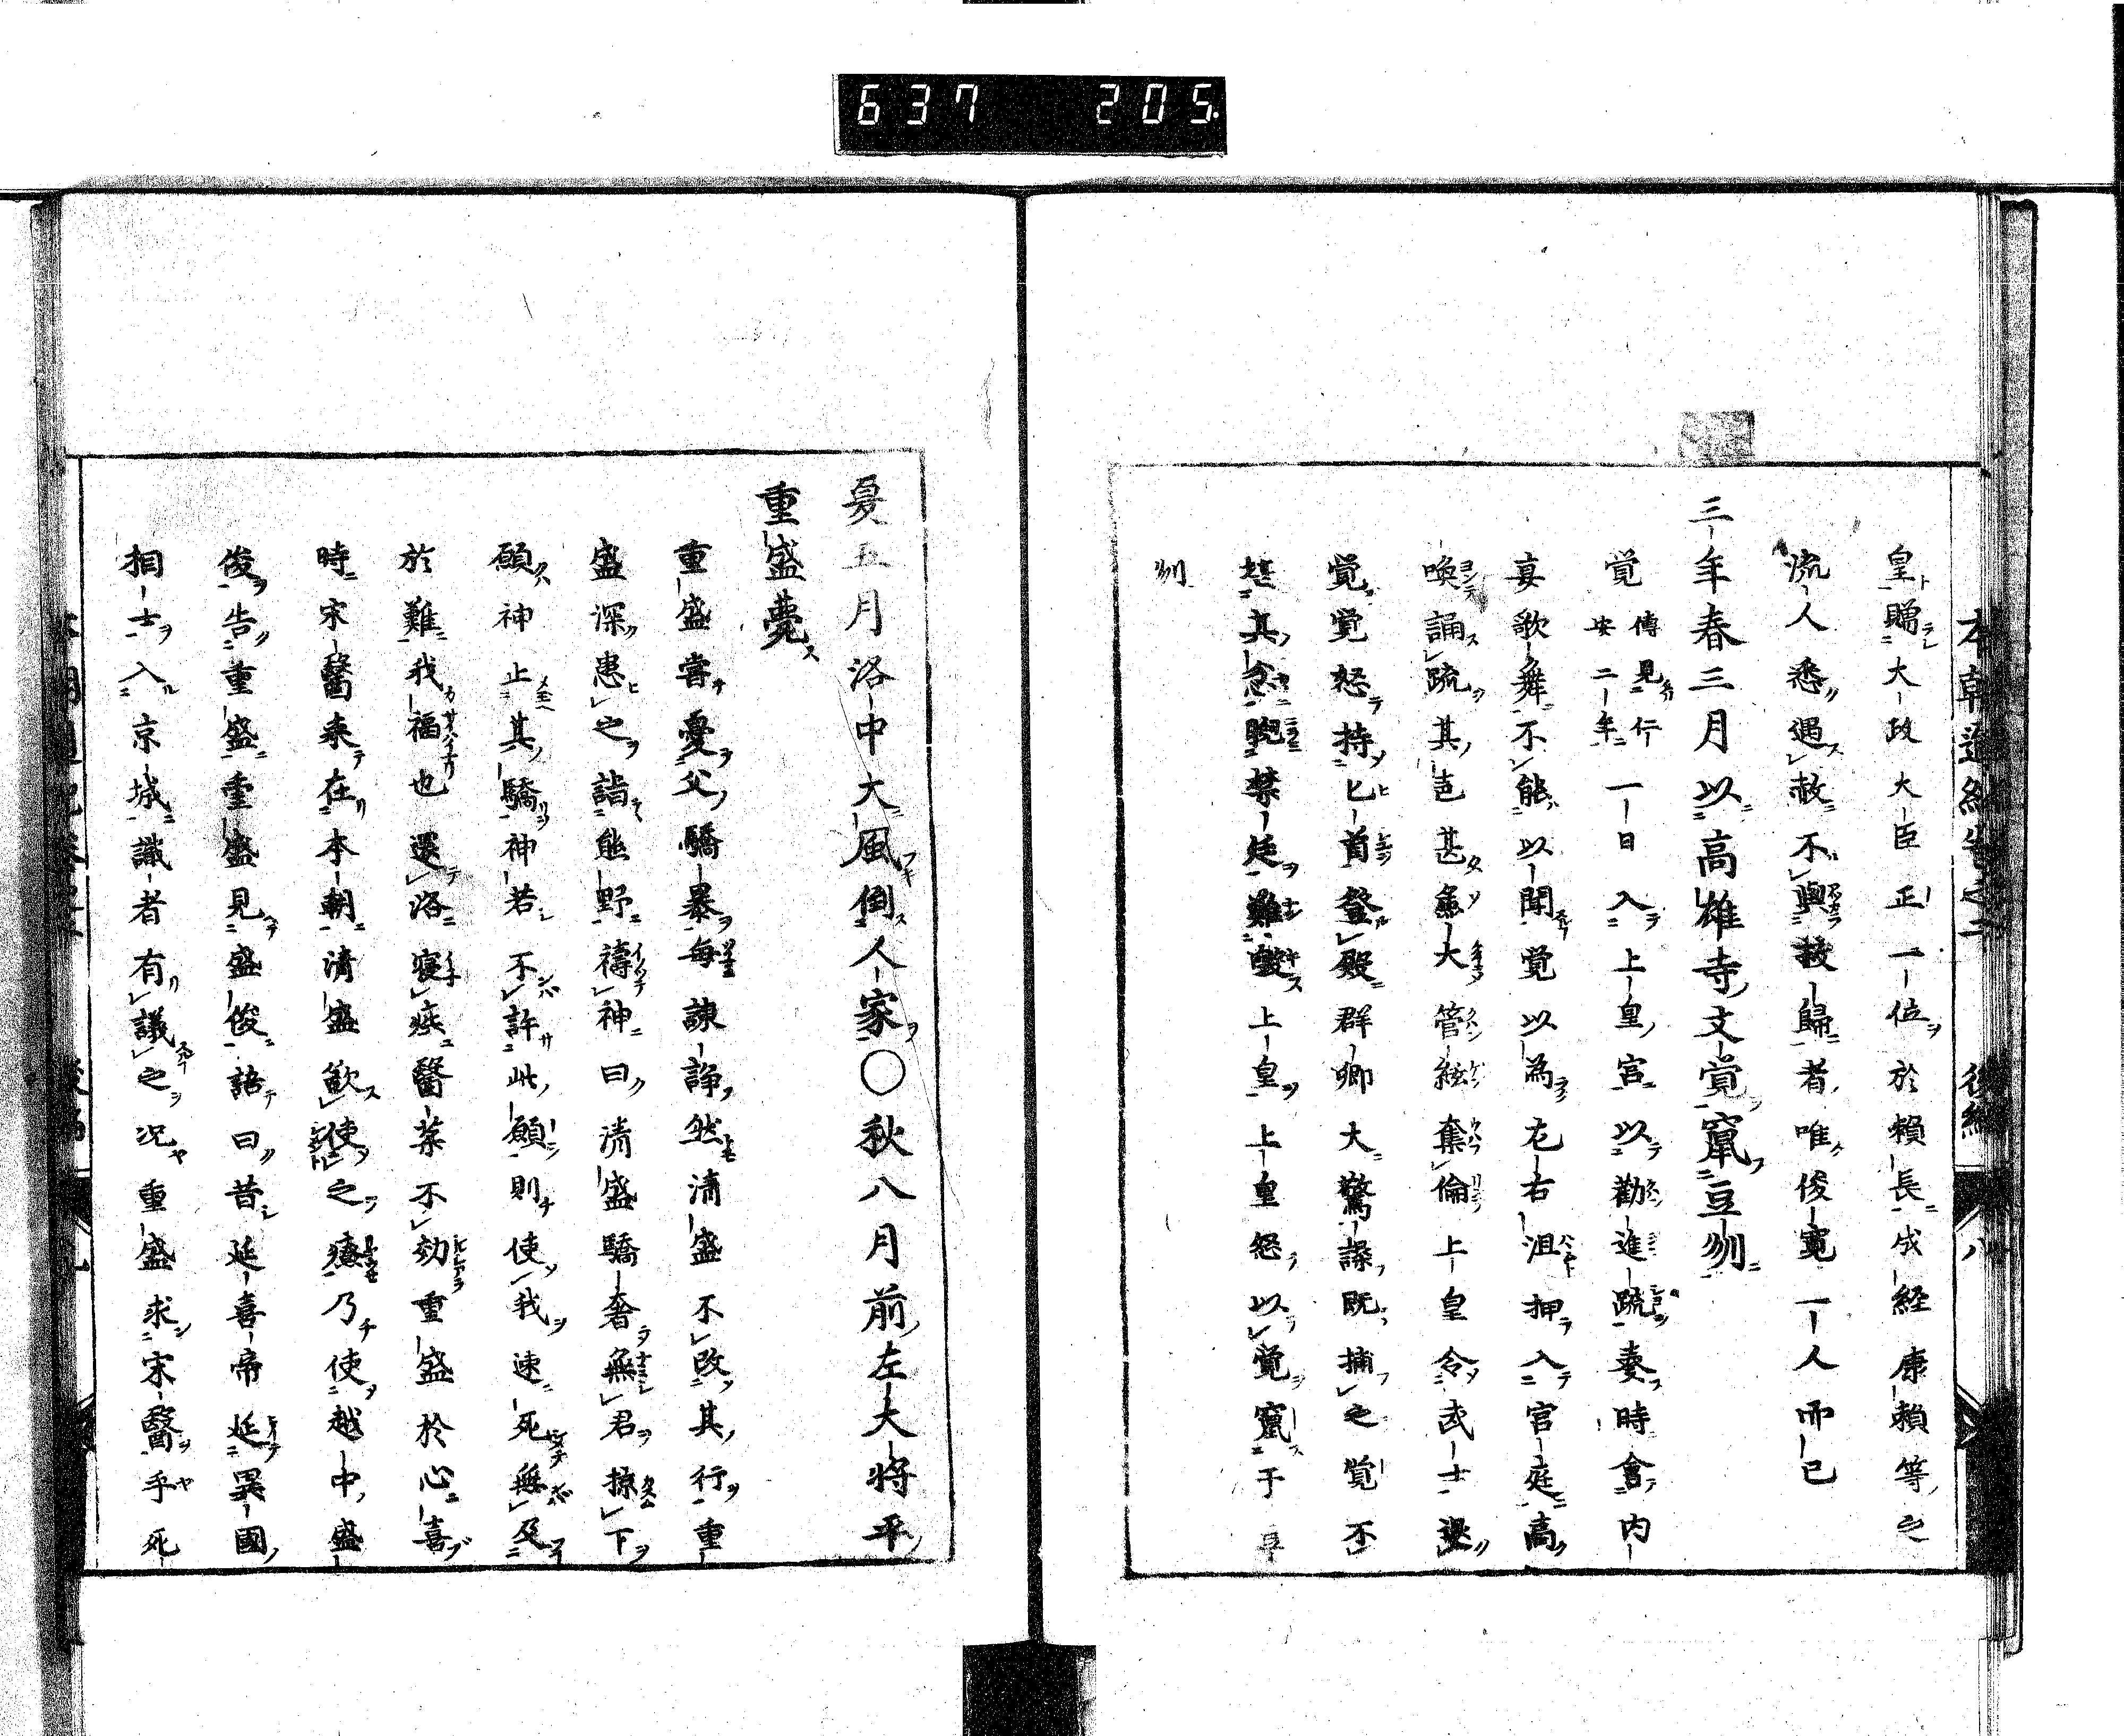 637 205.
皇贈大政大臣正一位於頼長成経康頼等之
流人悉遇赦不與救歸者唯俊寛一人而已
三年春三月以高雄寺文覚竄豆州
覚傳見仁安二年一日入上皇宮以勸進疏奏時會内
宴歌舞不能以聞覚以為左右沮押入官庭高
喚誦疏其声甚急大管絃奪倫上皇令武士退
覚覚怒持匕首登殿群卿大驚譟既捕之覚不
其忿禁廷難上皇上皇怒以覚竄于
州
夏五月洛中大風倒人家〇秋八月前左大将平
重盛薨
重盛嘗憂父驕暴毎諫諍然清盛不改其行重
盛深患之詣熊野禱神曰清盛驕奢無君掠下
願神止其驕神若不許此願則使我速死無及
於難我福也還洛寝疾醫薬不効重盛於心喜
時宋醫来在本朝清盛歓使之療乃使越中盛
俊告重盛重盛見盛俊語曰昔延喜帝延異國
相士入京城識者有議之况重盛求宋醫乎死